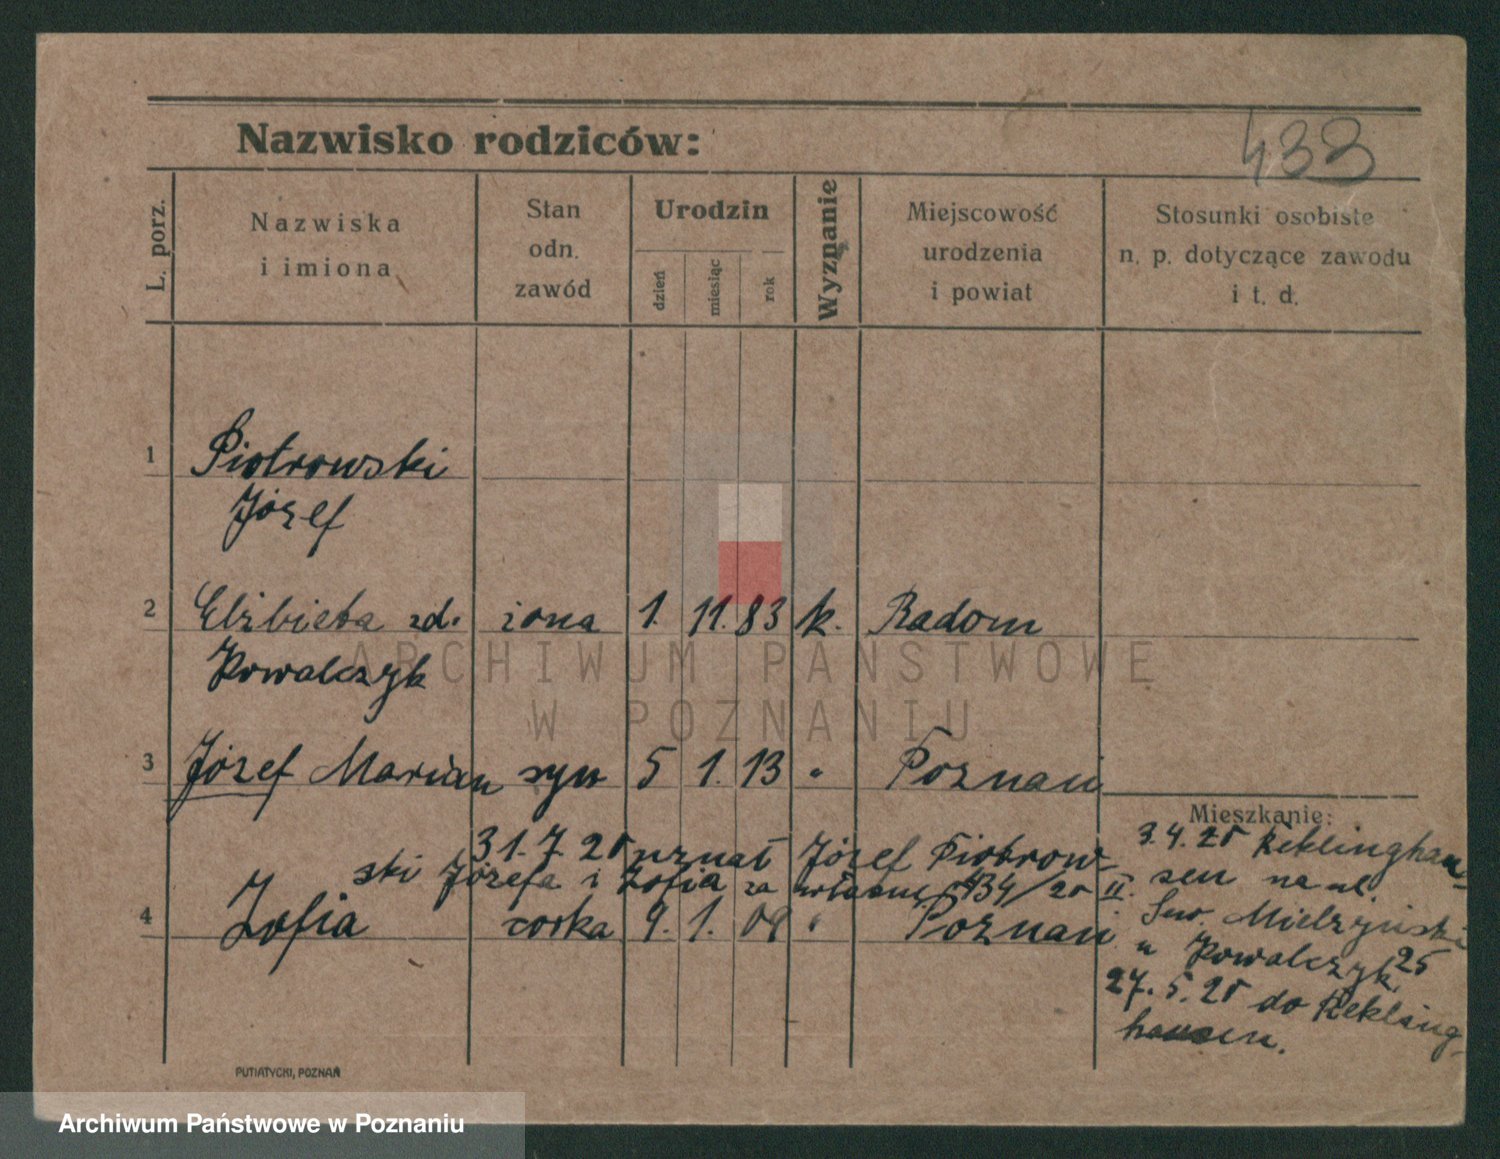 Nazwisko rodziców:
433
L. porz.
Nazwiska
i imiona
Stan
odn.
zawód
Urodzin
dzień
miesiąc
rok
Wyznanie
Miejscowość
urodzenia
i powiat
Stosunki osobiste
n. p. dotyczące zawodu
i t. d.
1 Piotrowski
Józef
2 Elżbieta zd. żona 1. 11. 83 k. Radom
Kowalczyk
3 Józef Marian syn 5 1. 13 " Poznań
31. 7. 20 uznał Józef Piotrow-
ski Józefa i Zofia za własne 434/20 II.
4 Zofia córka 9. 1. 09 " Poznań
Mieszkanie:
3. 4. 20 Reklinghau-
sen na ul.
Sew. Mielżyński
u Kowalczyk 25
27. 5. 20 do Rekling-
hausen.
PUTIATYCKI, POZNAŃ
ARCHIWUM PAŃSTWOWE
W POZNANIU
Archiwum Państwowe w Poznaniu